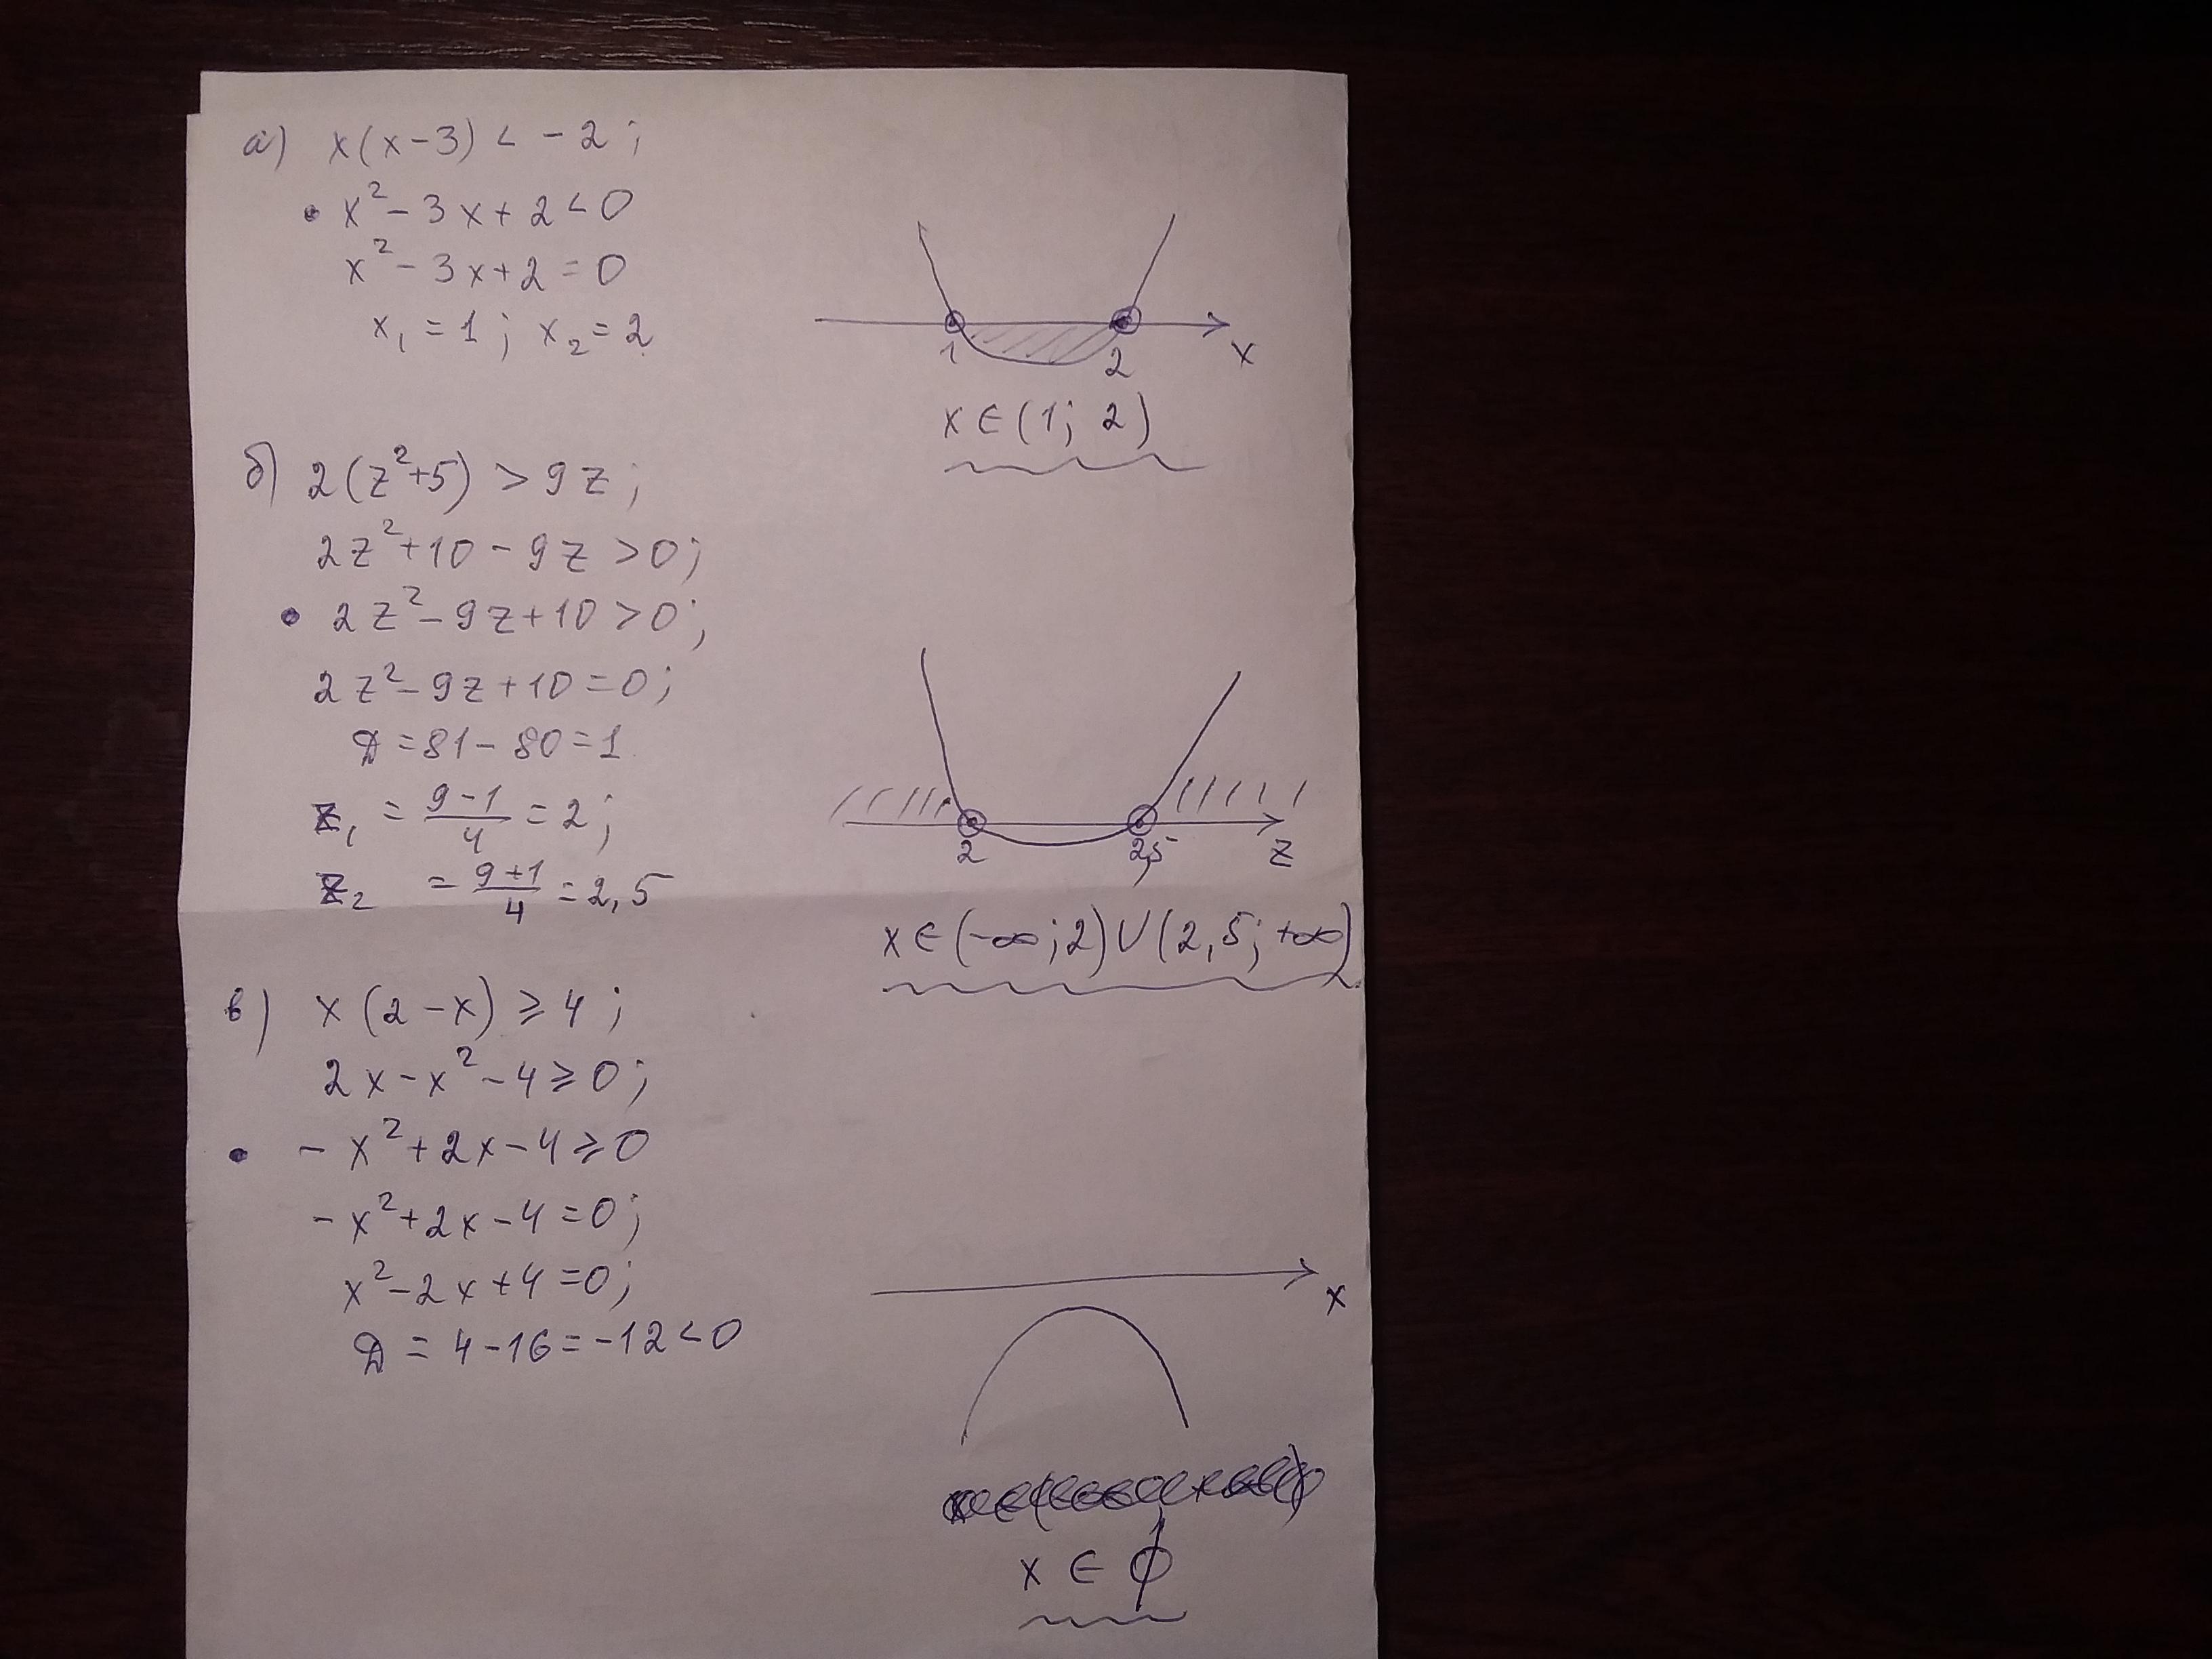 а) x(x-3) < -2;
• x²-3x+2<0
x²-3x+2=0
x₁=1; x₂=2
1 2 x
x∈(1; 2)
б) 2(z²+5) > 9z;
2z²+10-9z>0;
• 2z²-9z+10>0;
2z²-9z+10=0;
Д=81-80=1
z₁ = (9-1)/4 = 2;
z₂ = (9+1)/4 = 2,5
2 2,5 z
x∈(-∞;2)∪(2,5;+∞)
в) x(2-x) ≥ 4;
2x-x²-4≥0;
• -x²+2x-4≥0
-x²+2x-4=0;
x²-2x+4=0;
Д = 4-16=-12<0
x
x ∈ ∅